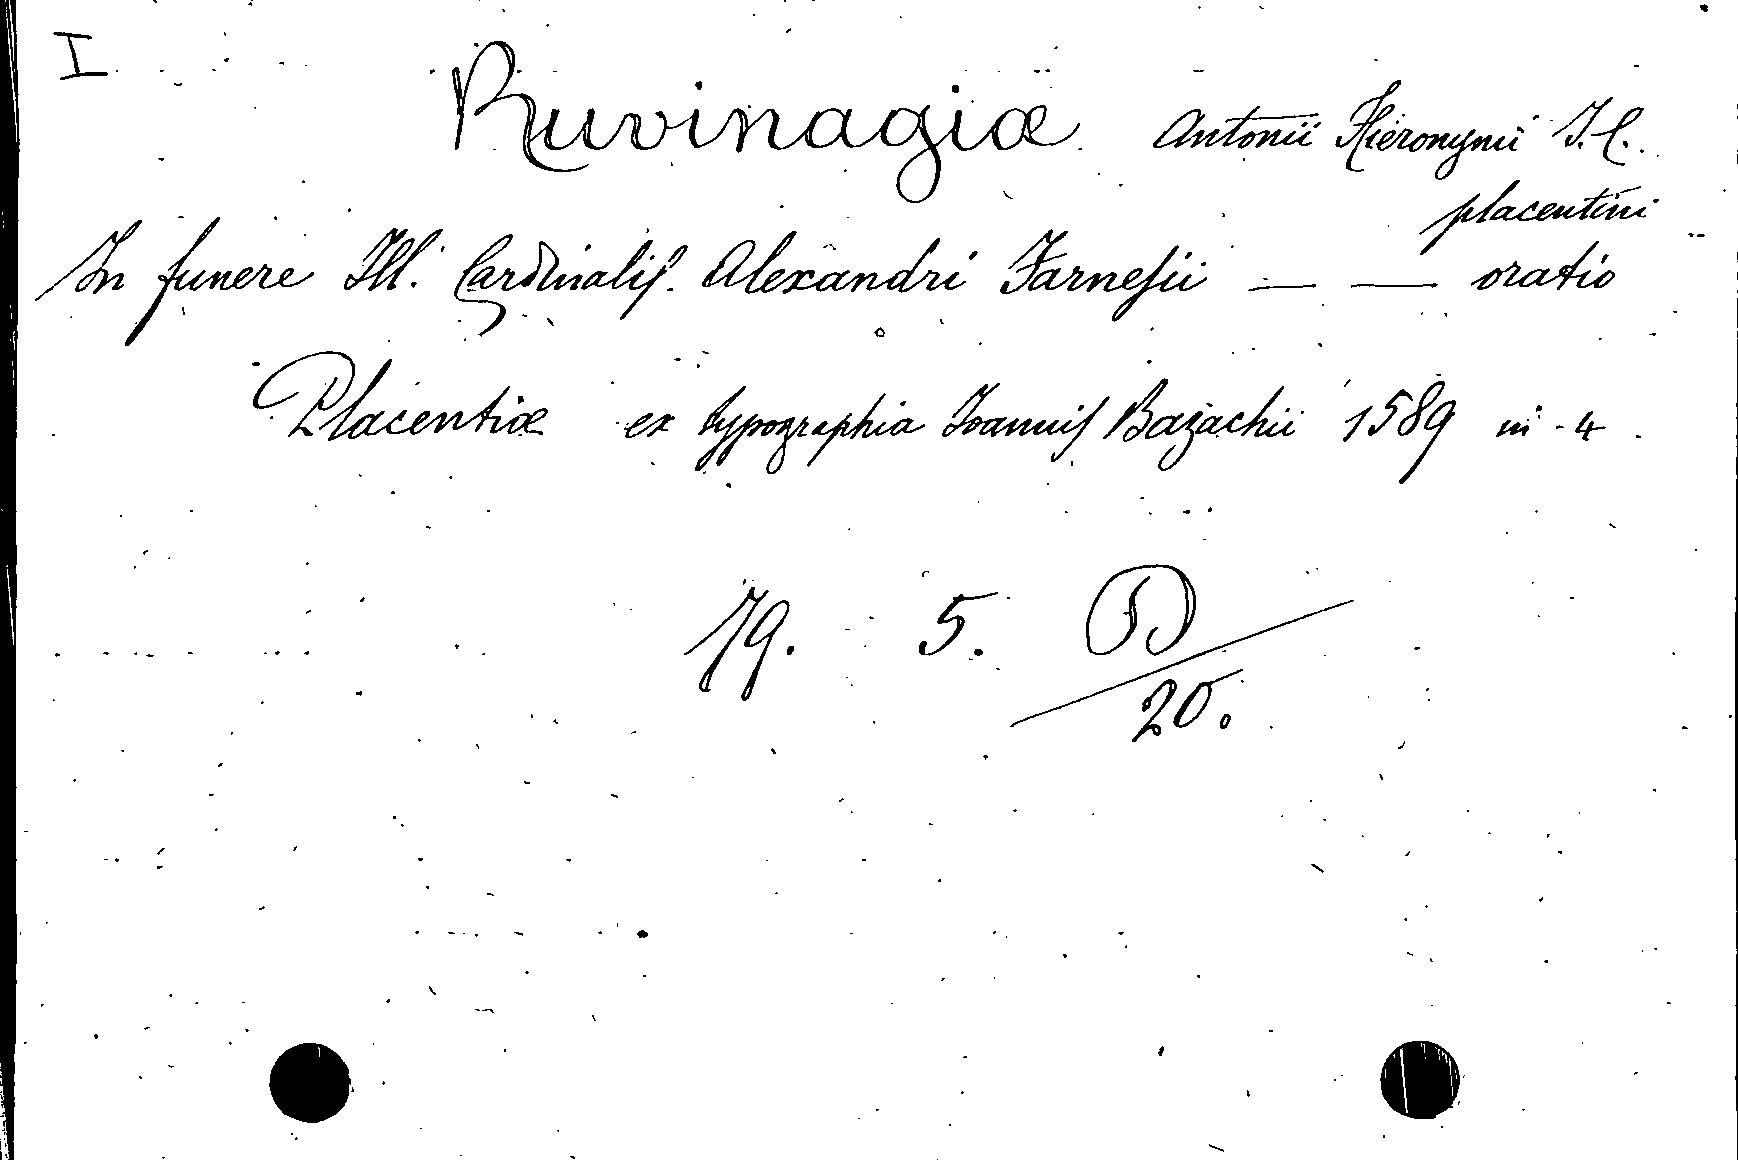 I
Ruvinagiæ Antonii Hieronymi J. C.
placentini
In funere Ill. Cardinaliſ. Alexandri Farneſii — — oratio
Placentiæ ex typographia Joanniſ Bazachii 1589 in-4.
79. 5. D
20.